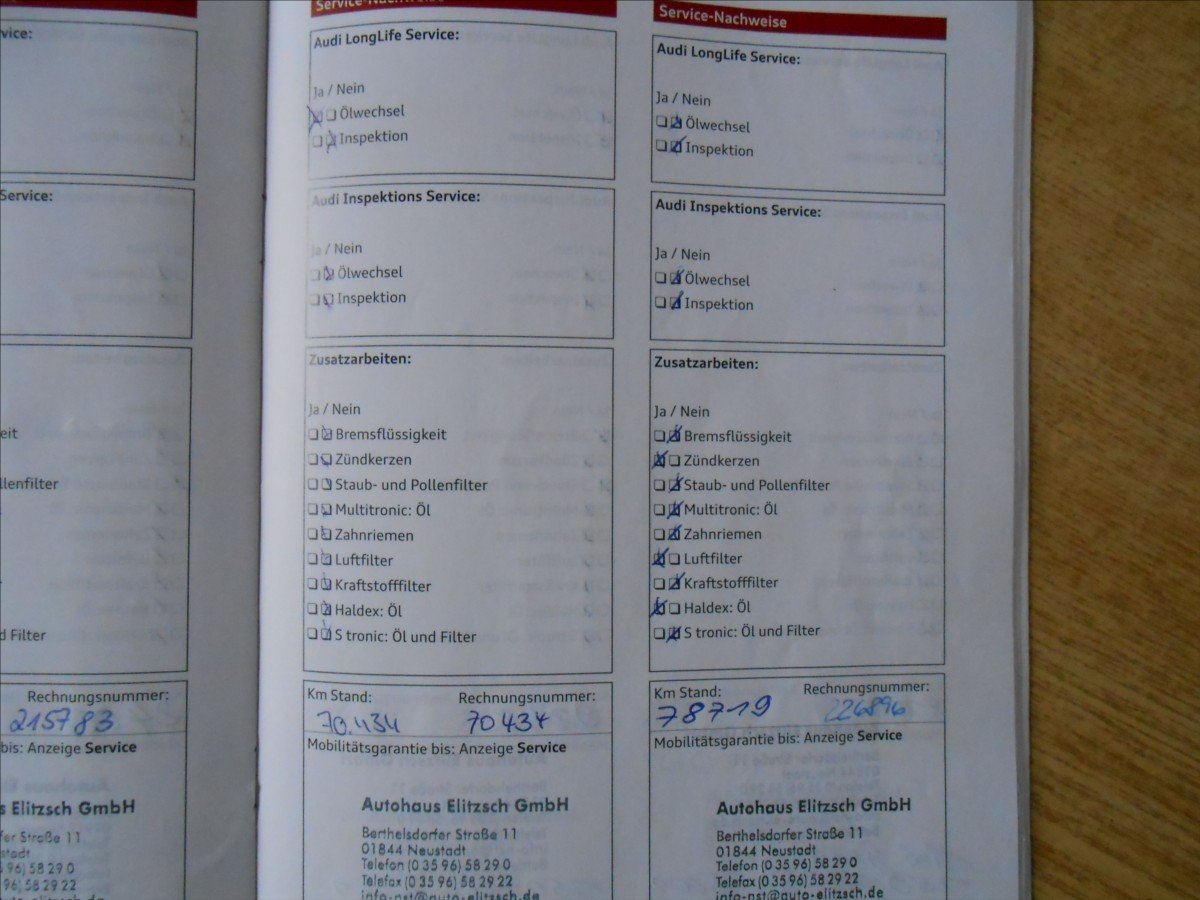 vice:
Service:
eit
llenfilter
d Filter
Rechnungsnummer:
215783
bis: Anzeige Service
s Elitzsch GmbH
fer Straße 11
stadt
) 58 29 0
58 29 22
to-elitzsch.de
Service-Nachweise
Audi LongLife Service:
Ja / Nein
Ölwechsel
Inspektion
Audi Inspektions Service:
Ja / Nein
Ölwechsel
Inspektion
Zusatzarbeiten:
Ja / Nein
Bremsflüssigkeit
Zündkerzen
Staub- und Pollenfilter
Multitronic: Öl
Zahnriemen
Luftfilter
Kraftstofffilter
Haldex: Öl
S tronic: Öl und Filter
Km Stand: Rechnungsnummer:
70.434 70434
Mobilitätsgarantie bis: Anzeige Service
Autohaus Elitzsch GmbH
Berthelsdorfer Straße 11
01844 Neustadt
Telefon (0 35 96) 58 29 0
Telefax (0 35 96) 58 29 22
info-nst@auto-elitzsch.de
Service-Nachweise
Audi LongLife Service:
Ja / Nein
Ölwechsel
Inspektion
Audi Inspektions Service:
Ja / Nein
Ölwechsel
Inspektion
Zusatzarbeiten:
Ja / Nein
Bremsflüssigkeit
Zündkerzen
Staub- und Pollenfilter
Multitronic: Öl
Zahnriemen
Luftfilter
Kraftstofffilter
Haldex: Öl
S tronic: Öl und Filter
Km Stand: Rechnungsnummer:
78719 226896
Mobilitätsgarantie bis: Anzeige Service
Autohaus Elitzsch GmbH
Berthelsdorfer Straße 11
01844 Neustadt
Telefon (0 35 96) 58 29 0
Telefax (0 35 96) 58 29 22
info-nst@auto-elitzsch.de